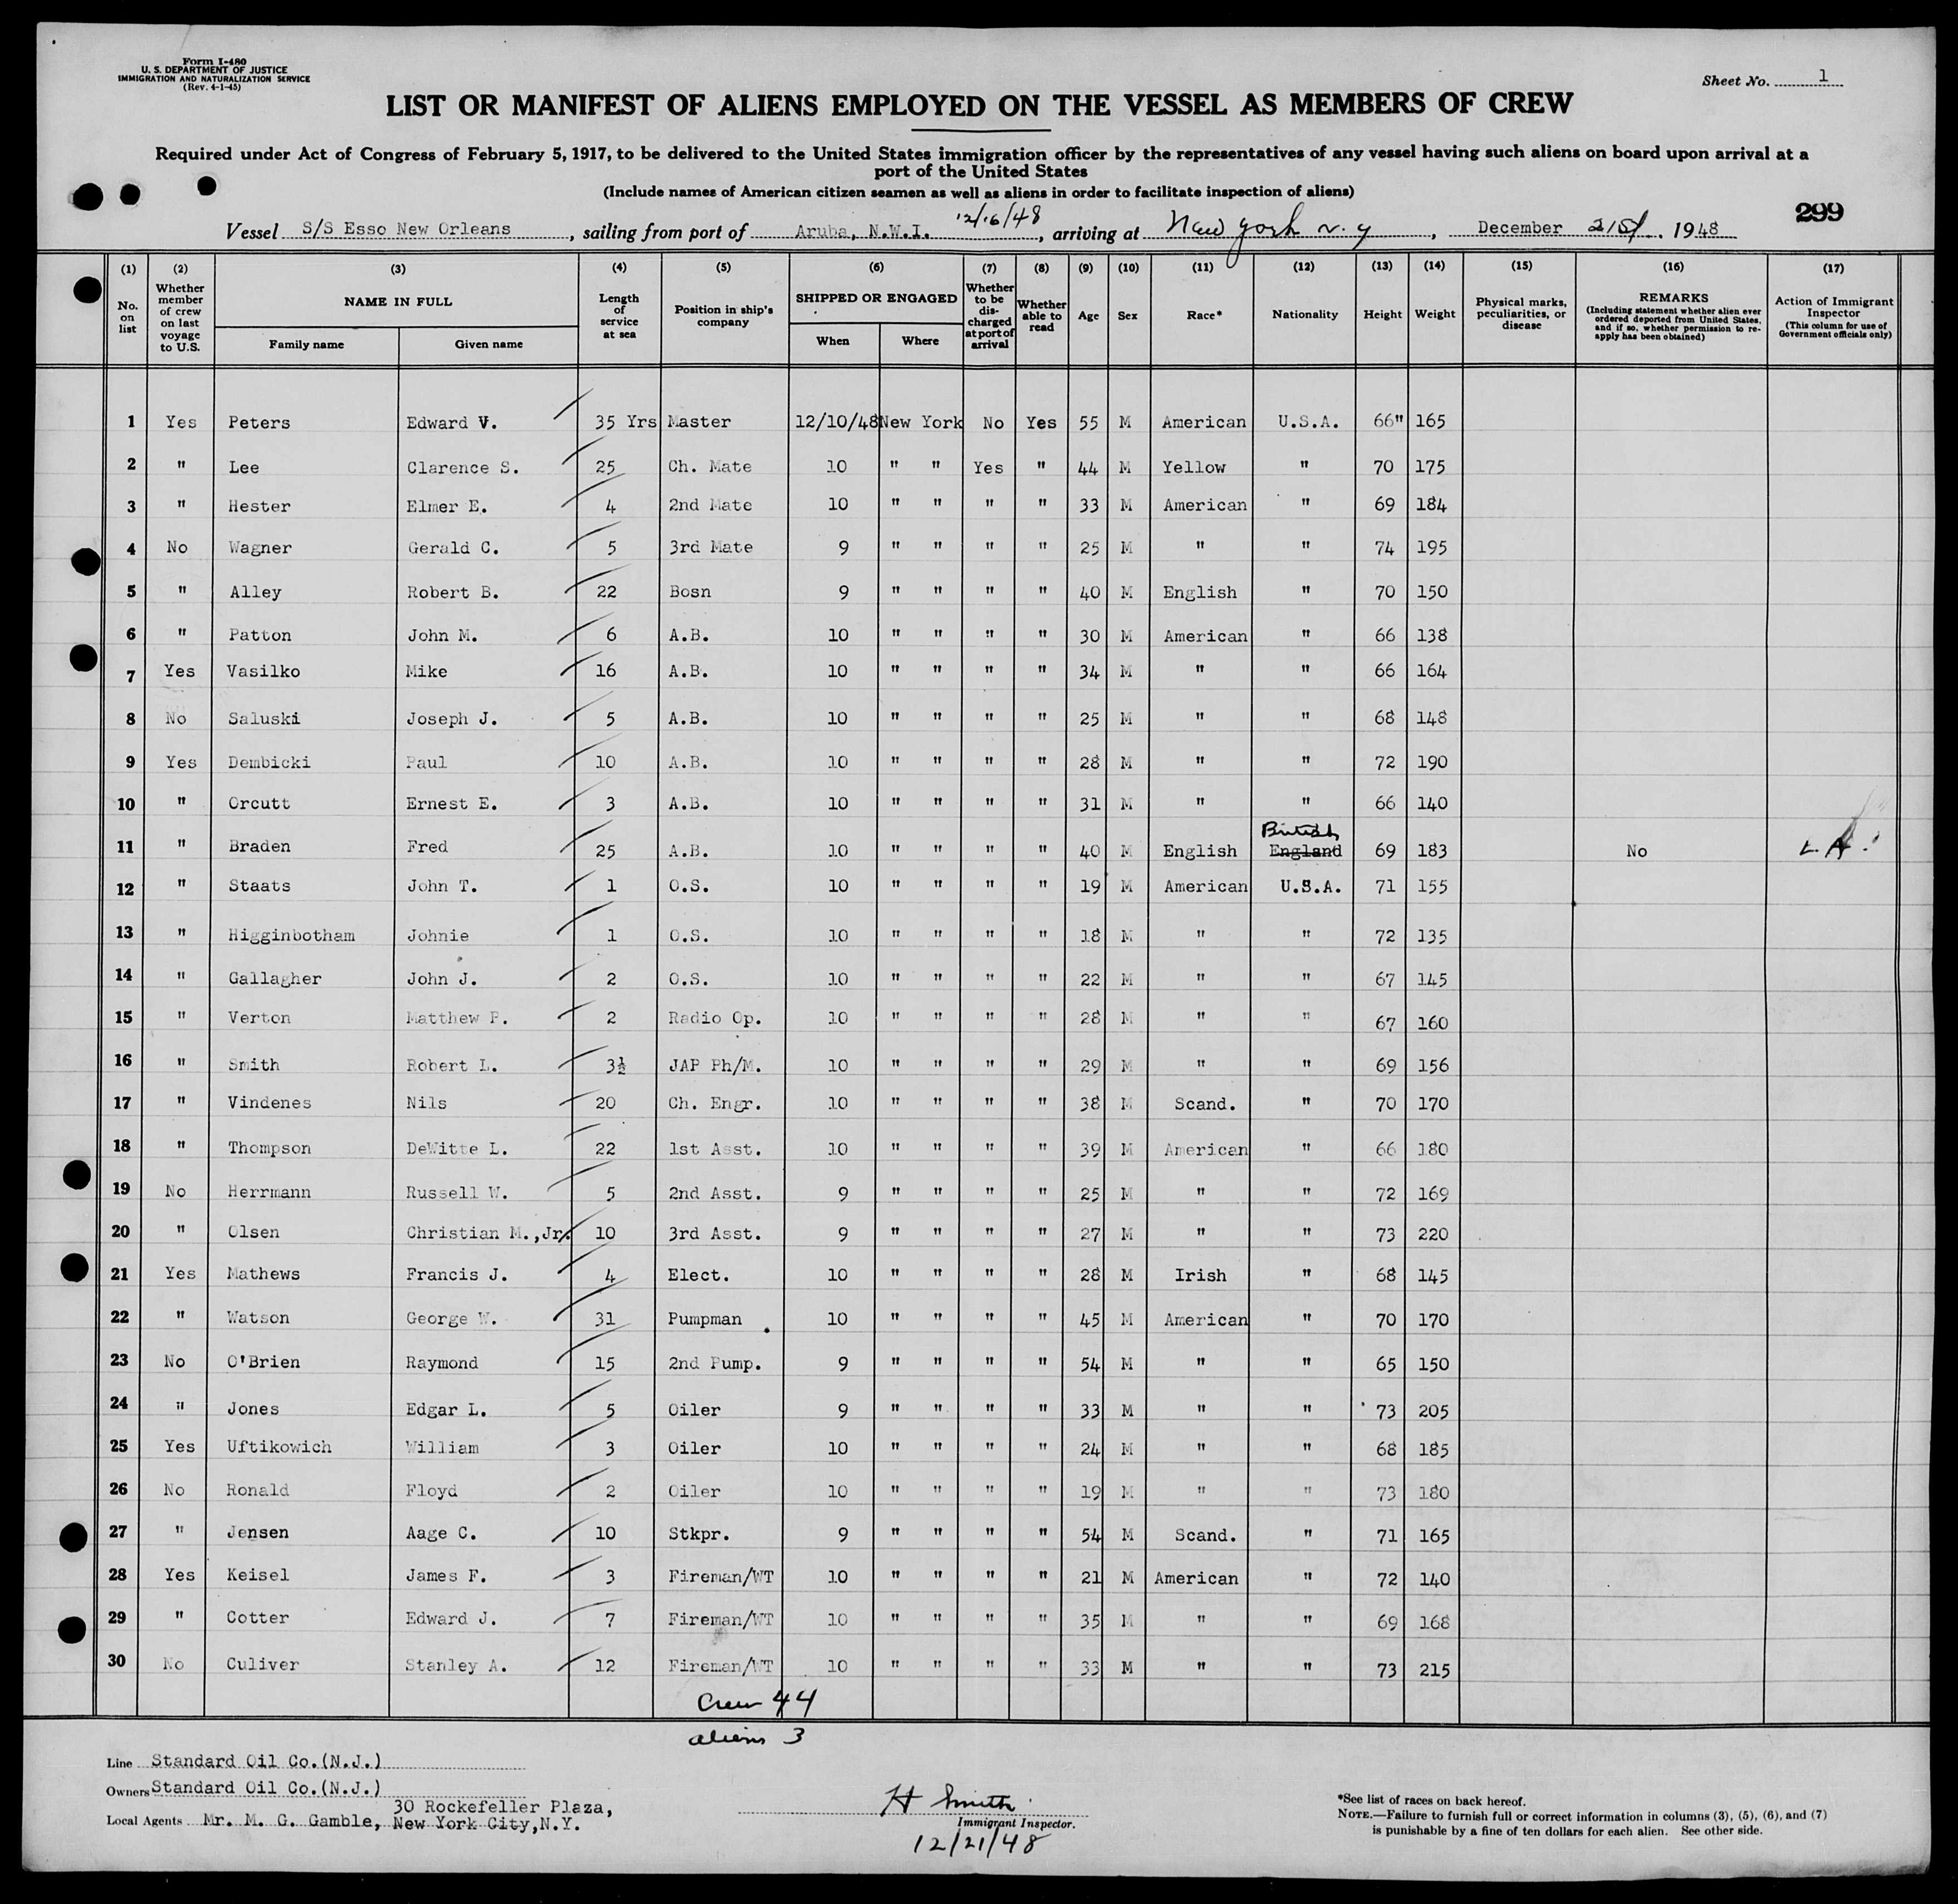 Form I-480
U. S. DEPARTMENT OF JUSTICE
IMMIGRATION AND NATURALIZATION SERVICE
(Rev. 4-1-45)
Sheet No. 1
LIST OR MANIFEST OF ALIENS EMPLOYED ON THE VESSEL AS MEMBERS OF CREW
Required under Act of Congress of February 5, 1917, to be delivered to the United States immigration officer by the representatives of any vessel having such aliens on board upon arrival at a
port of the United States
(Include names of American citizen seamen as well as aliens in order to facilitate inspection of aliens)
299
Vessel S/S Esso New Orleans, sailing from port of Aruba, N.W.I. 12/16/48, arriving at New York N.Y, December 21st, 1948
(1) (2) (3) (4) (5) (6) (7) (8) (9) (10) (11) (12) (13) (14) (15) (16) (17)
No. on list
Whether member of crew on last voyage to U.S.
NAME IN FULL
Family name Given name
Length of service at sea
Position in ship's company
SHIPPED OR ENGAGED
When Where
Whether to be discharged at port of arrival
Whether able to read
Age
Sex
Race*
Nationality
Height
Weight
Physical marks, peculiarities, or disease
REMARKS
(Including statement whether alien ever ordered deported from United States, and if so, whether permission to re-apply has been obtained)
Action of Immigrant Inspector
(This column for use of Government officials only)
1 Yes Peters Edward V. 35 Yrs Master 12/10/48 New York No Yes 55 M American U.S.A. 66" 165
2 " Lee Clarence S. 25 Ch. Mate 10 " " Yes " 44 M Yellow " 70 175
3 " Hester Elmer E. 4 2nd Mate 10 " " " " 33 M American " 69 184
4 No Wagner Gerald C. 5 3rd Mate 9 " " " " 25 M " " 74 195
5 " Alley Robert B. 22 Bosn 9 " " " " 40 M English " 70 150
6 " Patton John M. 6 A.B. 10 " " " " 30 M American " 66 138
7 Yes Vasilko Mike 16 A.B. 10 " " " " 34 M " " 66 164
8 No Saluski Joseph J. 5 A.B. 10 " " " " 25 M " " 68 148
9 Yes Dembicki Paul 10 A.B. 10 " " " " 28 M " " 72 190
10 " Orcutt Ernest E. 3 A.B. 10 " " " " 31 M " " 66 140
British
11 " Braden Fred 25 A.B. 10 " " " " 40 M English England 69 183 No
12 " Staats John T. 1 O.S. 10 " " " " 19 M American U.S.A. 71 155
13 " Higginbotham Johnie 1 O.S. 10 " " " " 18 M " " 72 135
14 " Gallagher John J. 2 O.S. 10 " " " " 22 M " " 67 145
15 " Verton Matthew P. 2 Radio Op. 10 " " " " 28 M " " 67 160
16 " Smith Robert L. 3½ JAP Ph/M. 10 " " " " 29 M " " 69 156
17 " Vindenes Nils 20 Ch. Engr. 10 " " " " 38 M Scand. " 70 170
18 " Thompson DeWitte L. 22 1st Asst. 10 " " " " 39 M American " 66 180
19 No Herrmann Russell W. 5 2nd Asst. 9 " " " " 25 M " " 72 169
20 " Olsen Christian M.,Jr. 10 3rd Asst. 9 " " " " 27 M " " 73 220
21 Yes Mathews Francis J. 4 Elect. 10 " " " " 28 M Irish " 68 145
22 " Watson George W. 31 Pumpman 10 " " " " 45 M American " 70 170
23 No O'Brien Raymond 15 2nd Pump. 9 " " " " 54 M " " 65 150
24 " Jones Edgar L. 5 Oiler 9 " " " " 33 M " " 73 205
25 Yes Uftikowich William 3 Oiler 10 " " " " 24 M " " 68 185
26 No Ronald Floyd 2 Oiler 10 " " " " 19 M " " 73 180
27 " Jensen Aage C. 10 Stkpr. 9 " " " " 54 M Scand. " 71 165
28 Yes Keisel James F. 3 Fireman/WT 10 " " " " 21 M American " 72 140
29 " Cotter Edward J. 7 Fireman/WT 10 " " " " 35 M " " 69 168
30 No Culiver Stanley A. 12 Fireman/WT 10 " " " " 33 M " " 73 215
Crew 44
aliens 3
Line Standard Oil Co.(N.J.)
Owners Standard Oil Co.(N.J.)
Local Agents Mr. M. G. Gamble, 30 Rockefeller Plaza, New York City,N.Y.
H Smith
Immigrant Inspector.
12/21/48
*See list of races on back hereof.
NOTE.—Failure to furnish full or correct information in columns (3), (5), (6), and (7)
is punishable by a fine of ten dollars for each alien. See other side.